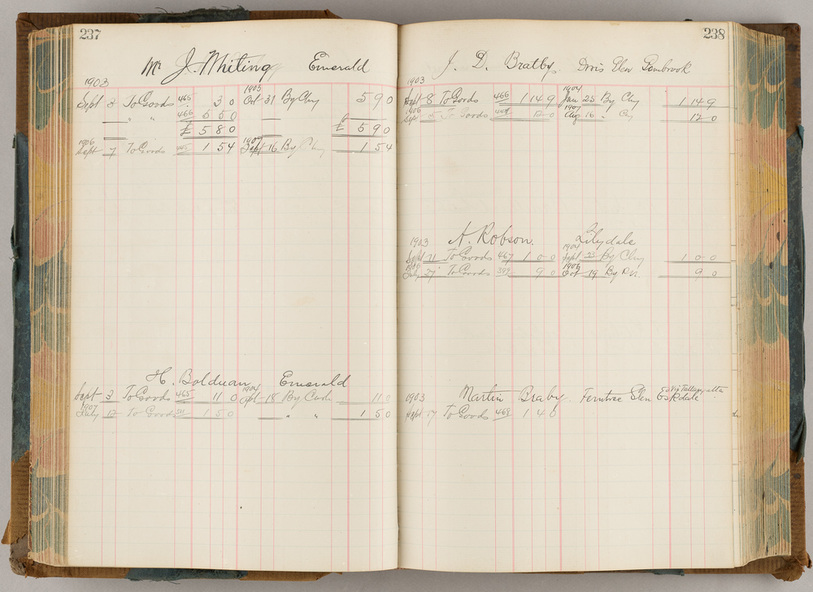 237
Mr J. Whiting Emerald
1903 1903
Sept 3 To Goods 465 3 0 Oct 31 By Chq 5 9 0
" " 466 5 6 0
£ 5 8 0 £ 5 9 0
1906 1907
Sept 7 To Goods 1 5 4 Sept 16 By Chq 1 5 4
H. Bolduan Emerald
Sept 3 To Goods 465 11 0 1904 Apl 18 By Cash 11 0
1907
July 12 To Goods 1 5 0 " " 1 5 0
238
J. D. Bralby Glen Genbrook
1903 1904
Sept 8 To Goods 466 1 14 9 Jan 25 By Chq 1 14 9
1906 1907
Sept To Goods 12 0 Aug 16 " 12 0
1903 A. Robson. Lilydale
1904
Sept 11 To Goods 467 1 0 0 Sept By Chq 1 0 0
1908
27 To Goods 9 0 Oct 19 By 9 0
1903 Martin Braby. Ferntree Glen
Sept 17 To Goods 468 1 4 0